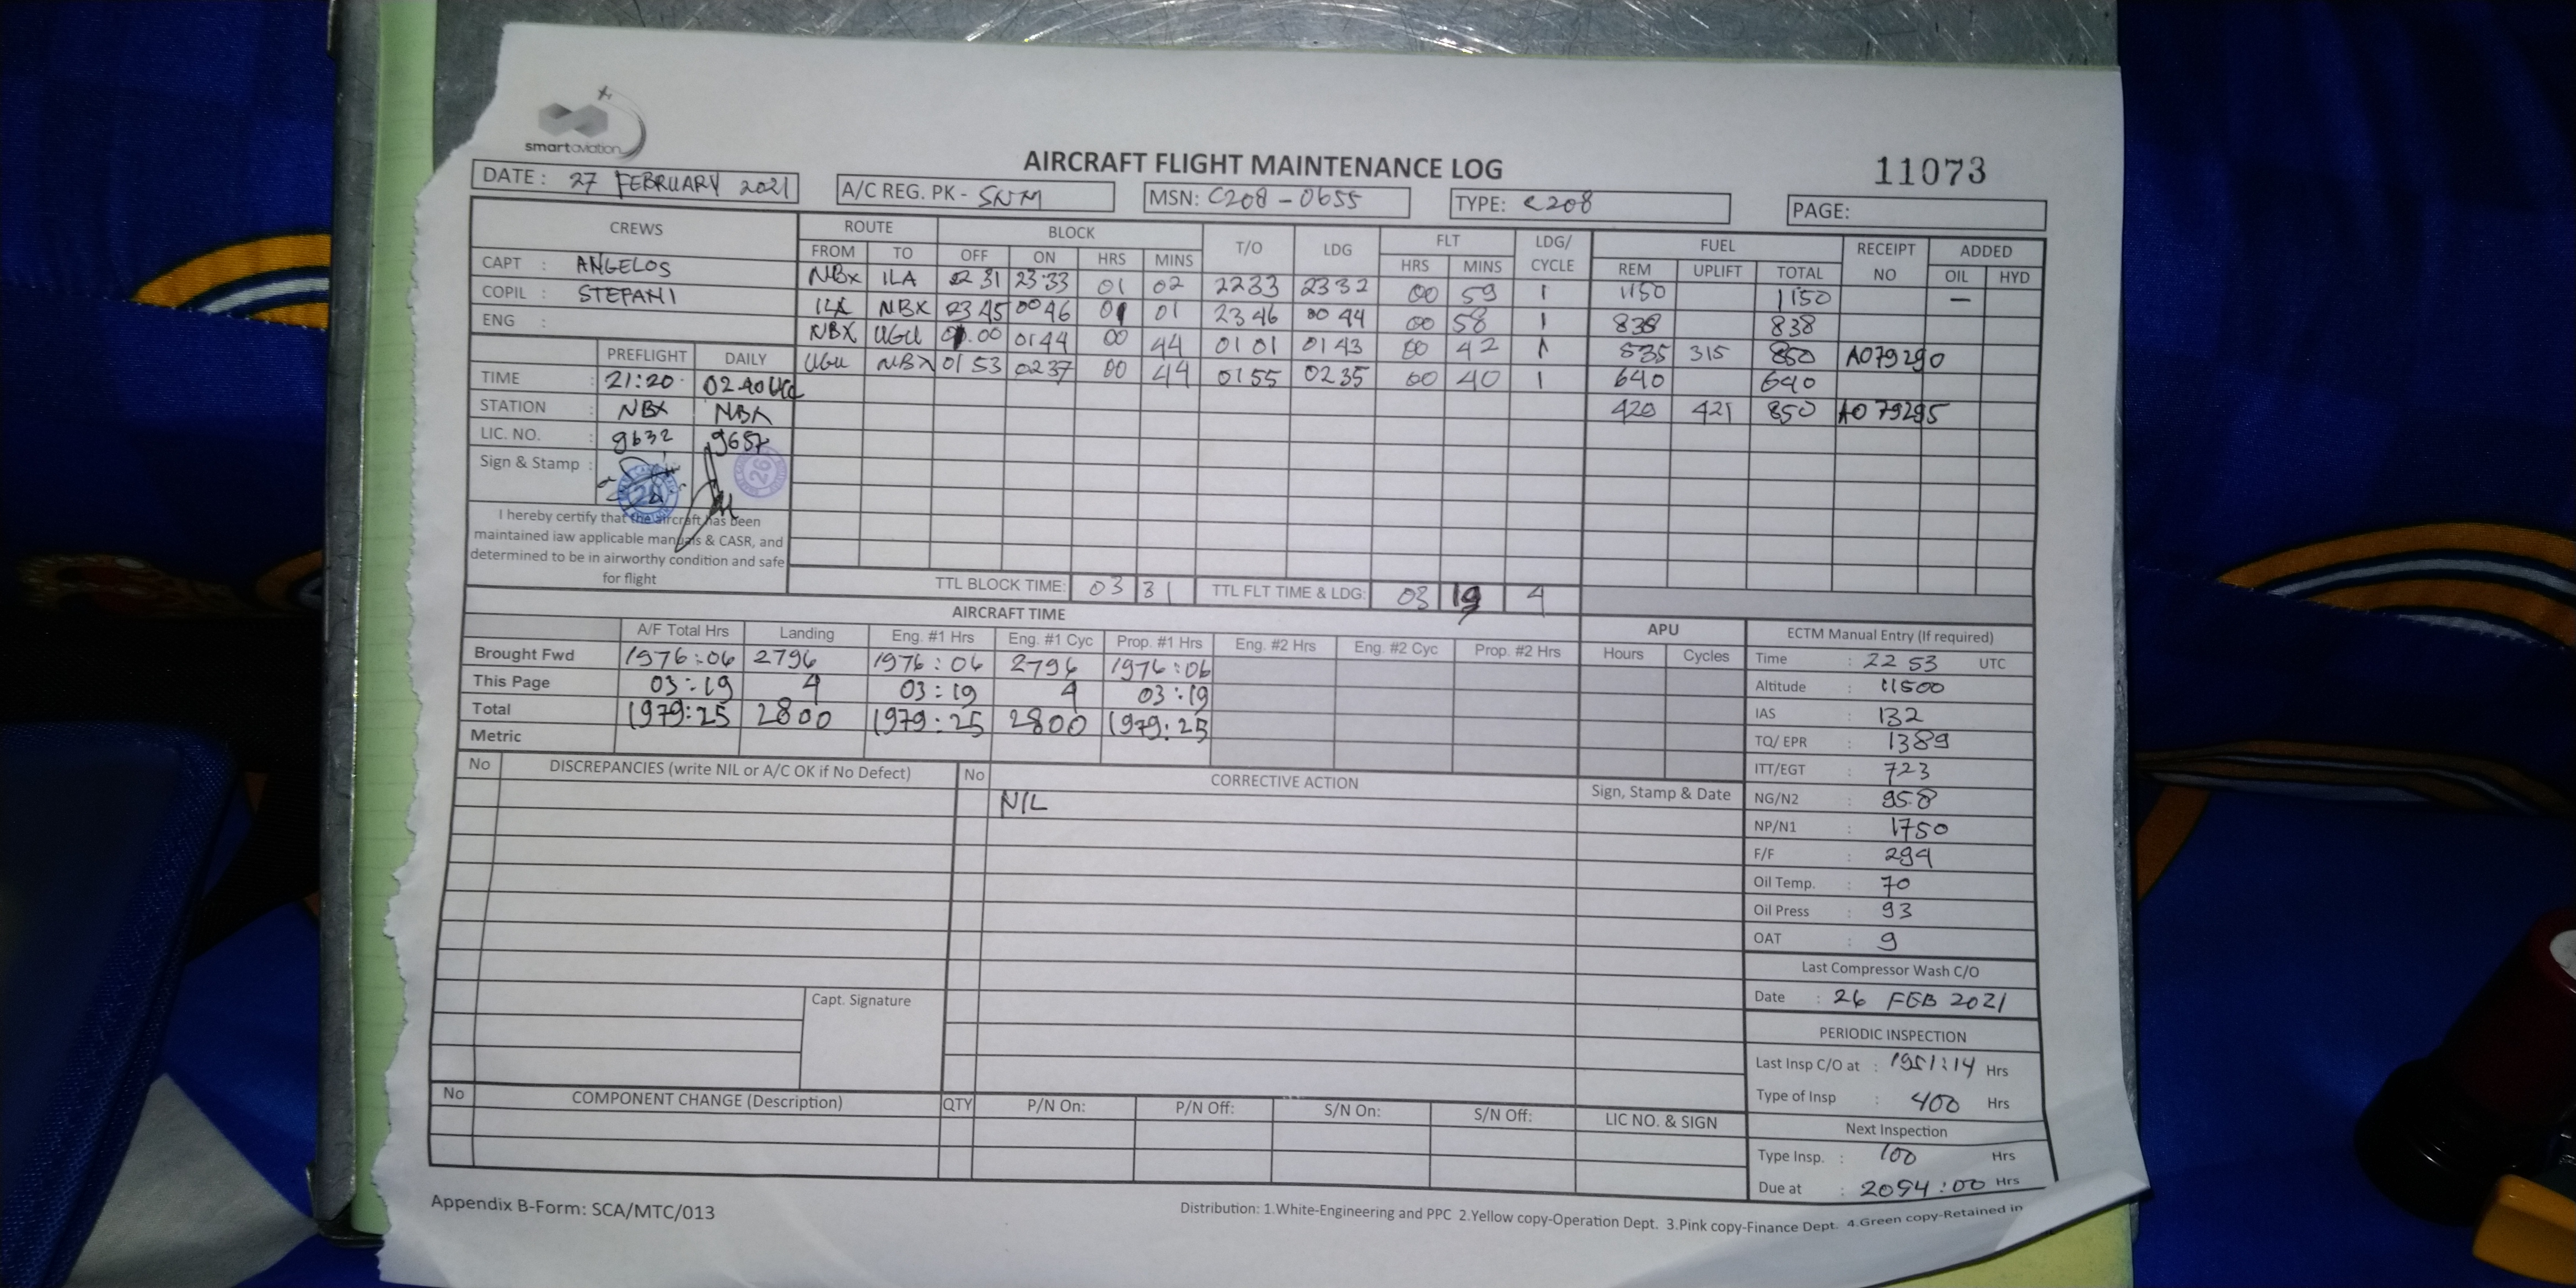 smartaviation
AIRCRAFT FLIGHT MAINTENANCE LOG
11073
DATE: 27 FEBRUARY 2021 A/C REG. PK - SNM MSN: C208 - 0655 TYPE: C208 PAGE:
CREWS ROUTE BLOCK T/O LDG FLT LDG/ CYCLE FUEL RECEIPT NO ADDED
FROM TO OFF ON HRS MINS HRS MINS REM UPLIFT TOTAL OIL HYD
CAPT : ANGELOS
COPIL : STEPANI
ENG :
NBX ILA 22 31 23:33 01 02 2233 2332 00 59 1 1150 1150 —
ILA NBX 23 45 00 46 01 01 23 46 00 44 00 58 1 838 838
NBX UGU 01.00 0144 00 44 01 01 01 43 00 42 1 535 315 850 A079290
UGU NBX 01 53 0237 00 44 0155 0235 00 40 1 640 640
420 421 850 A079295
PREFLIGHT DAILY
TIME : 21:20 02 40
STATION : NBX NBX
LIC. NO. : 9632 9657
Sign & Stamp :
26
I hereby certify that the aircraft has been
maintained iaw applicable manuals & CASR, and
determined to be in airworthy condition and safe
for flight
TTL BLOCK TIME: 03 31 TTL FLT TIME & LDG: 03 19 4
AIRCRAFT TIME APU
A/F Total Hrs Landing Eng. #1 Hrs Eng. #1 Cyc Prop. #1 Hrs Eng. #2 Hrs Eng. #2 Cyc Prop. #2 Hrs Hours Cycles
Brought Fwd 1976:06 2796 1976:06 2796 1976:06
This Page 03:19 4 03:19 4 03:19
Total 1979:25 2800 1979:25 2800 1979:25
Metric
ECTM Manual Entry (If required)
Time : 22 53 UTC
Altitude : 11500
IAS : 132
TQ/ EPR : 1389
ITT/EGT : 723
NG/N2 : 95.8
NP/N1 : 1750
F/F : 294
Oil Temp. : 70
Oil Press : 93
OAT : 9
Last Compressor Wash C/O
Date : 26 FEB 2021
PERIODIC INSPECTION
Last Insp C/O at : 1951:14 Hrs
Type of Insp : 400 Hrs
Next Inspection
Type Insp. : 100 Hrs
Due at : 2094:00 Hrs
No DISCREPANCIES (write NIL or A/C OK if No Defect) No CORRECTIVE ACTION Sign, Stamp & Date
NIL
Capt. Signature
No COMPONENT CHANGE (Description) QTY P/N On: P/N Off: S/N On: S/N Off: LIC NO. & SIGN
Appendix B-Form: SCA/MTC/013
Distribution: 1.White-Engineering and PPC 2.Yellow copy-Operation Dept. 3.Pink copy-Finance Dept. 4.Green copy-Retained in